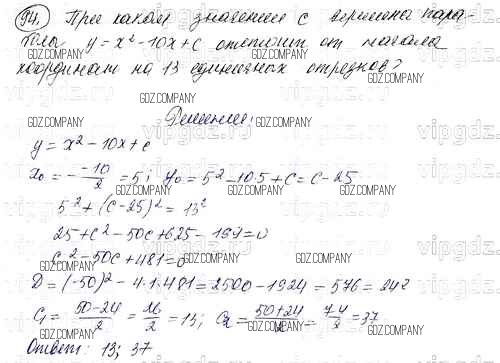 94. При каком значении с вершина пара-
болы y = x² - 10x + c отстоит от начала
координат на 13 единичных отрезков?
GDZ.COMPANY
Решение.
y = x² - 10x + c
x₀ = - -10/2 = 5; y₀ = 5² - 10·5 + c = c - 25
5² + (c - 25)² = 13²
25 + c² - 50c + 625 - 169 = 0
c² - 50c + 481 = 0
D = (-50)² - 4·1·481 = 2500 - 1924 = 576 = 24²
c₁ = 50-24/2 = 26/2 = 13; c₂ = 50+24/2 = 74/2 = 37
Ответ: 13; 37
vipgdz.ru